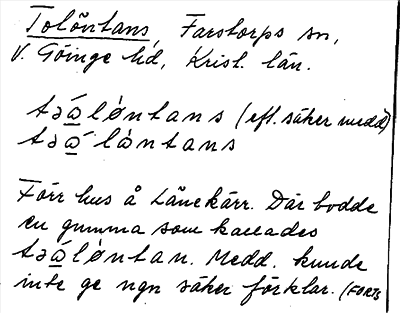 Tolöntans, Farstorps sn,
V. Göinge hd, Krist. län.
tɔa̲´lòntans (efl. säker medd)
tɔa̲´lòntans
Förr hus å Lånekärr. Där bodde
en gumma som kallades
tɔa̲´lòntan. Medd. kunde
inte ge ngn säker förklar. (FORTS